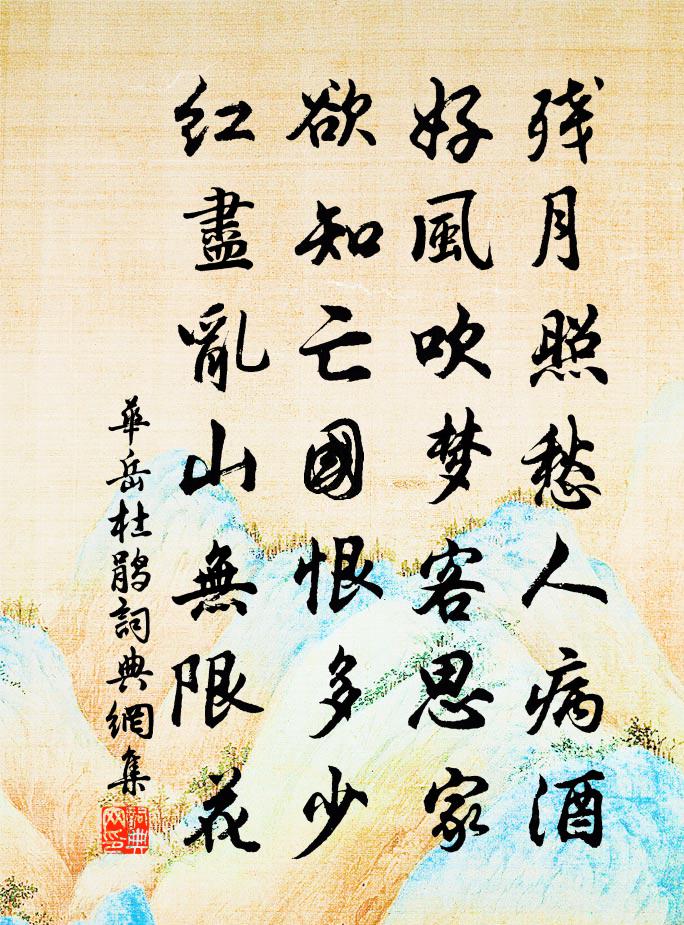 残月照愁人病酒
好風吹梦客思家
欲知亡國恨多少
红盡亂山無限花
華岳杜鹃詞典網集
詞典網印